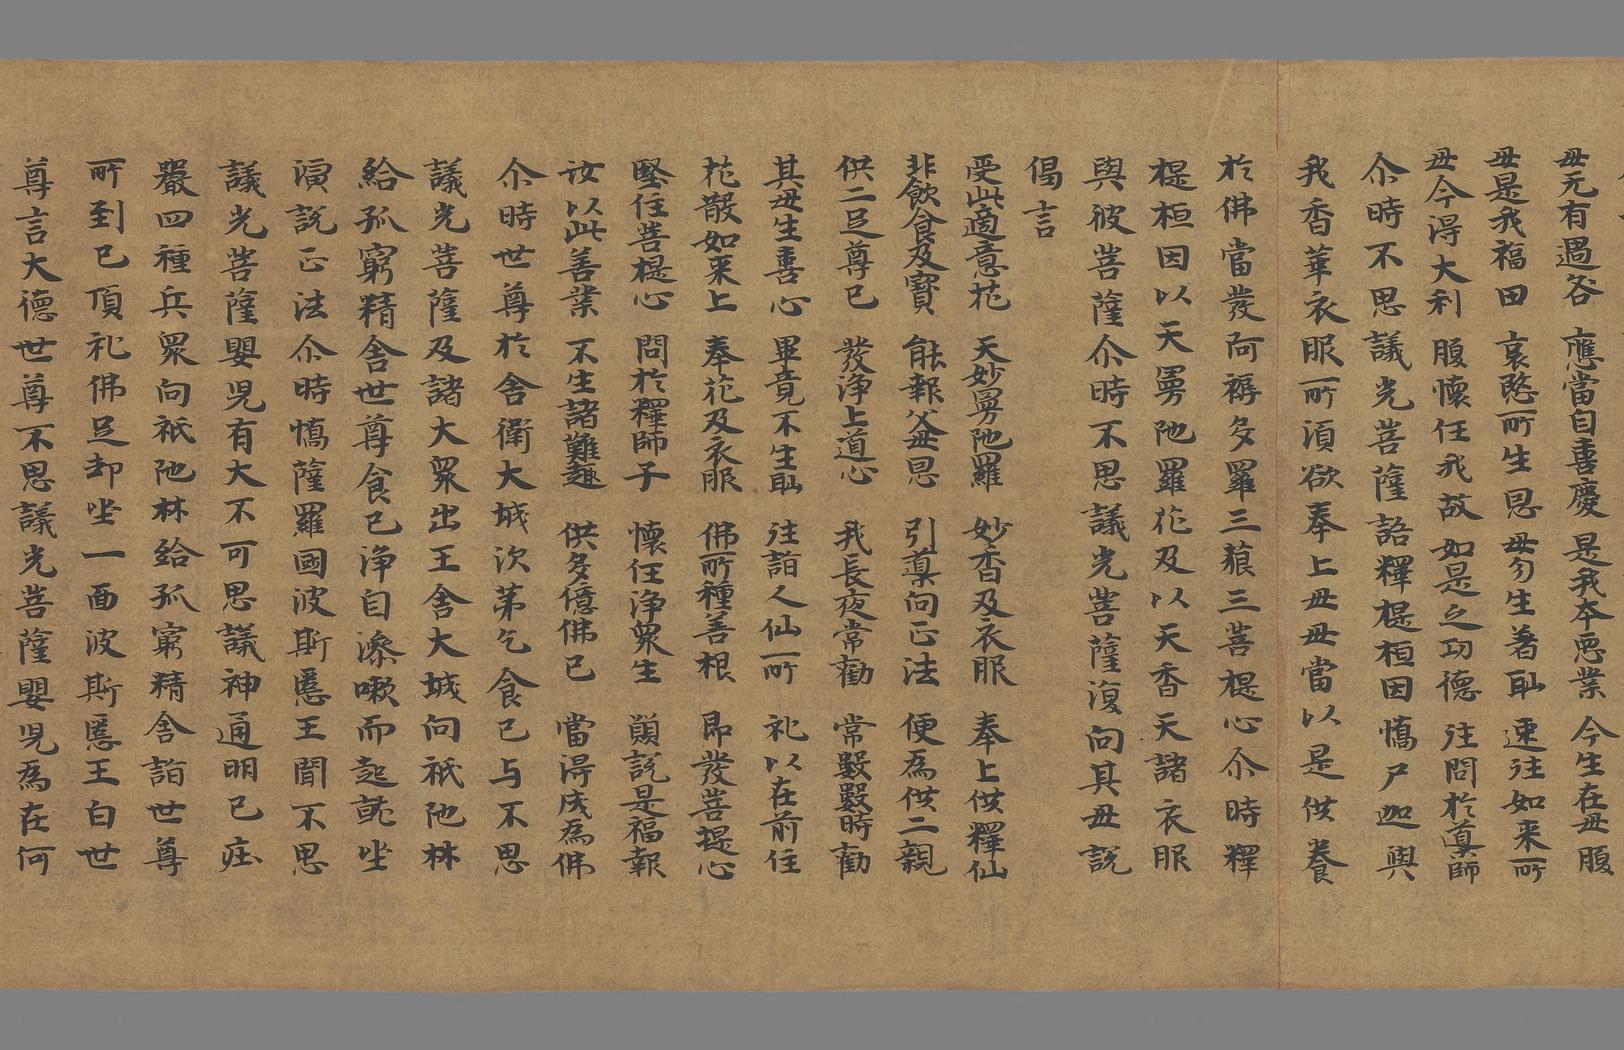 毋无有過咎　應當自喜慶　是我本惡業　今生在毋腹
毋是我福田　哀愍所生恩　毋勿生著恥　速往如來所
毋今得大利　腹懷任我故　如是之功德　往問於導師
尒時不思議光菩薩語釋提桓因憍尸迦與
我香華衣服所湏欲奉上毋毋當以是供養
於佛當發阿耨多羅三藐三菩提心尒時釋
提桓因以天㝹陁羅花及以天香天諸衣服
與彼菩薩尒時不思議光菩薩復向其毋說
偈言
受此適意花　天妙㝹陁羅　妙香及衣服　奉上供釋仙
非飲食及寶　能報父毋恩　引導向正法　便為供二親
供二足尊已　發淨上道心　我長夜常勸　常數數時勸
其毋生喜心　畢竟不生恥　往詣人仙所　礼以在前住
花散如來上　奉花及衣服　佛所種善根　即發菩提心
堅住菩提心　問於釋師子　懷任淨衆生　願說是福報
汝以此善業　不生諸難趣　供多億佛已　當得成為佛
尒時世尊於舍衛大城次苐乞食已与不思
議光菩薩及諸大衆出王舍大城向祇陁林
給孤窮精舍世尊食已淨自漱嗽而起就坐
演說正法尒時憍薩羅國波斯匿王聞不思
議光菩薩嬰兒有大不可思議神通明已疰
嚴四種兵衆向祇陁林給孤窮精舍詣世尊
所到已頂礼佛足却坐一面波斯匿王白世
尊言大德世尊不思議光菩薩嬰兒為在何